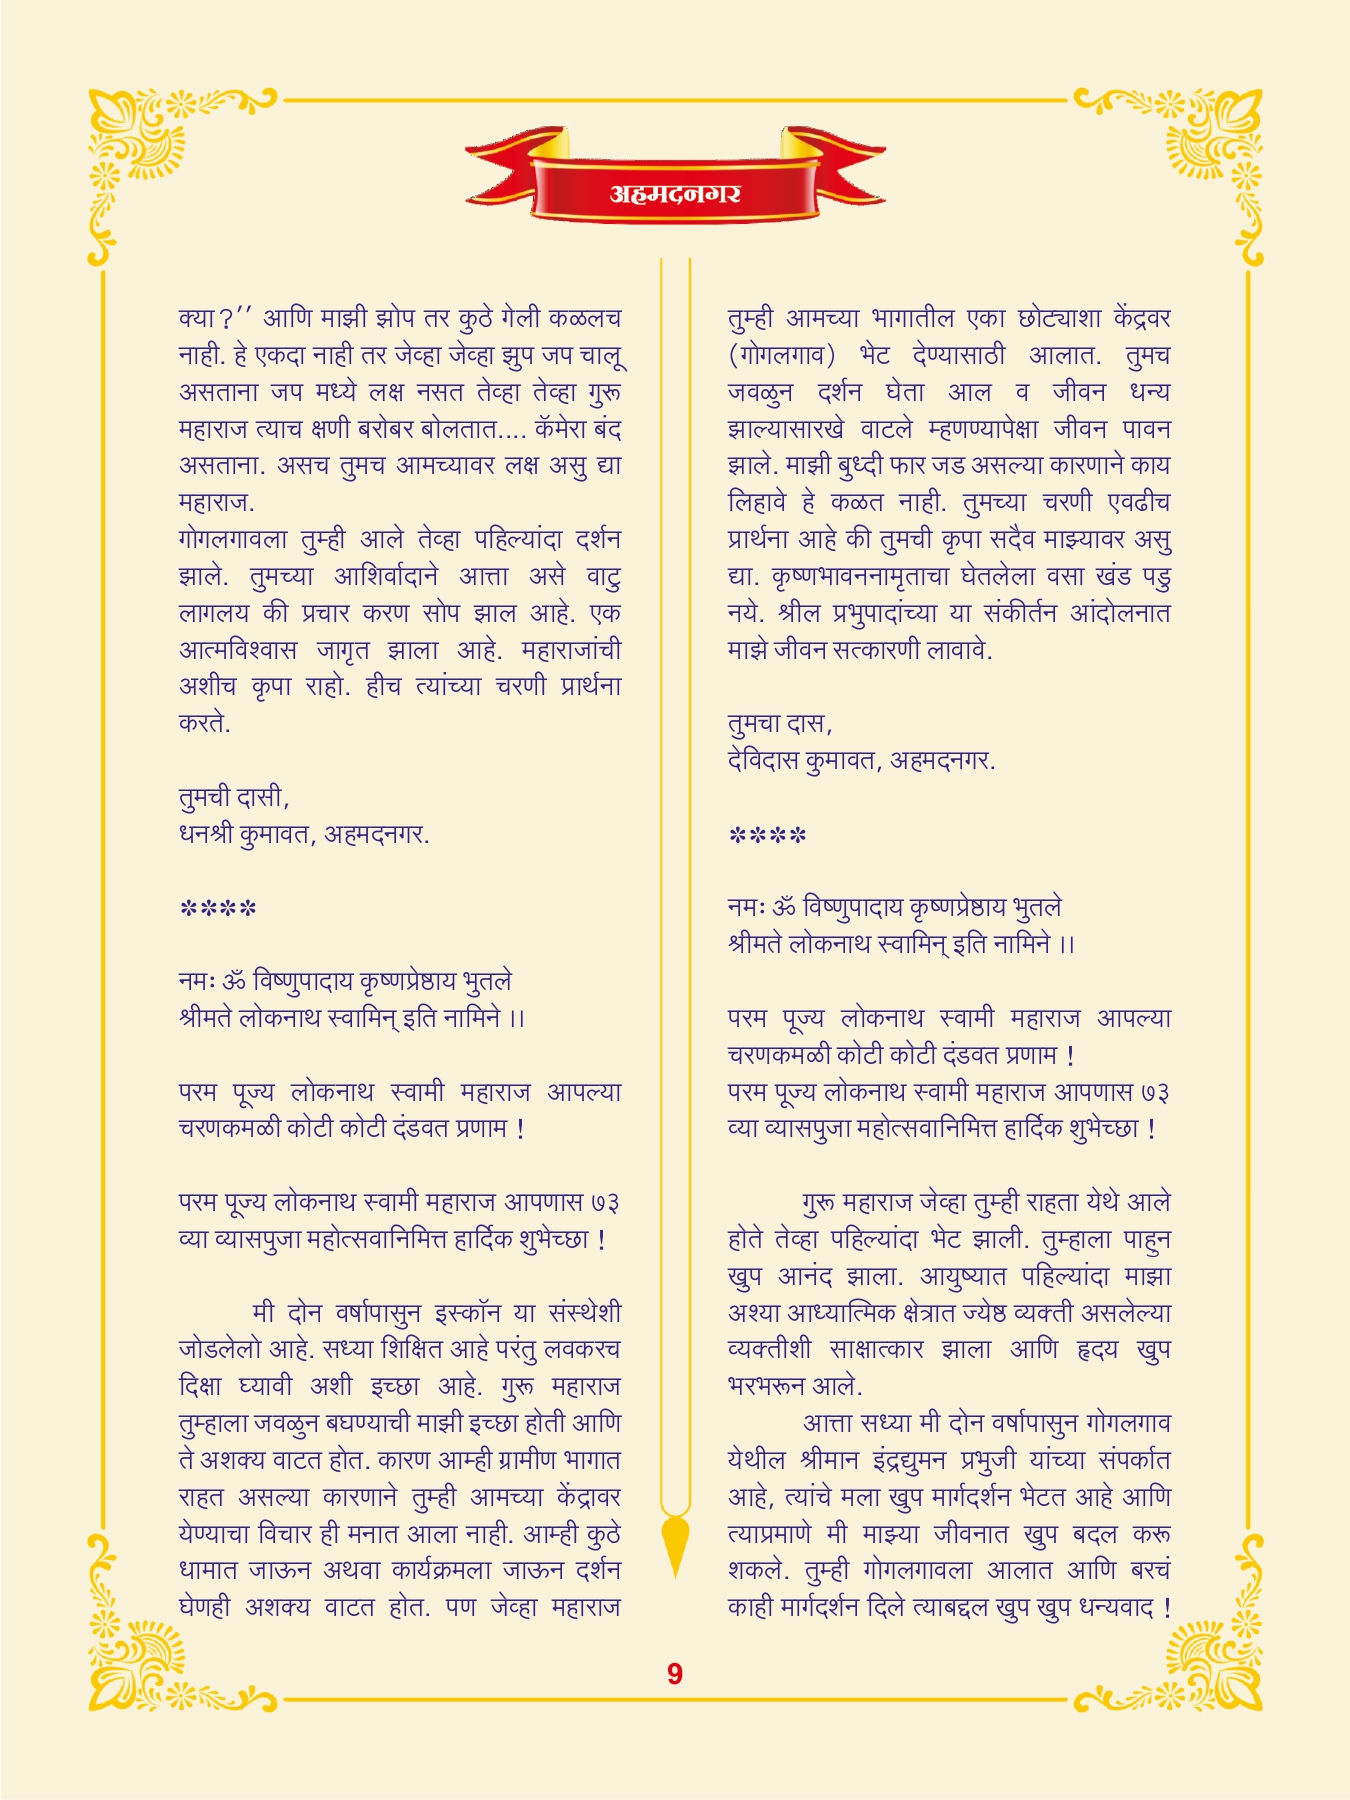 अहमदनगर
क्या?’’ आणि माझी झोप तर कुठे गेली कळलच
नाही. हे एकदा नाही तर जेव्हा जेव्हा झुप जप चालू
असताना जप मध्ये लक्ष नसत तेव्हा तेव्हा गुरू
महाराज त्याच क्षणी बरोबर बोलतात.... कॅमेरा बंद
असताना. असच तुमच आमच्यावर लक्ष असु द्या
महाराज.
गोगलगावला तुम्ही आले तेव्हा पहिल्यांदा दर्शन
झाले. तुमच्या आशिर्वादाने आत्ता असे वाटु
लागलय की प्रचार करण सोप झाल आहे. एक
आत्मविश्वास जागृत झाला आहे. महाराजांची
अशीच कृपा राहो. हीच त्यांच्या चरणी प्रार्थना
करते.
तुमची दासी,
धनश्री कुमावत, अहमदनगर.
****
नमः ॐ विष्णुपादाय कृष्णप्रेष्ठाय भुतले
श्रीमते लोकनाथ स्वामिन् इति नामिने ।।
परम पूज्य लोकनाथ स्वामी महाराज आपल्या
चरणकमळी कोटी कोटी दंडवत प्रणाम !
परम पूज्य लोकनाथ स्वामी महाराज आपणास ७३
व्या व्यासपुजा महोत्सवानिमित्त हार्दिक शुभेच्छा !
मी दोन वर्षापासुन इस्कॉन या संस्थेशी
जोडलेलो आहे. सध्या शिक्षित आहे परंतु लवकरच
दिक्षा घ्यावी अशी इच्छा आहे. गुरू महाराज
तुम्हाला जवळुन बघण्याची माझी इच्छा होती आणि
ते अशक्य वाटत होत. कारण आम्ही ग्रामीण भागात
राहत असल्या कारणाने तुम्ही आमच्या केंद्रावर
येण्याचा विचार ही मनात आला नाही. आम्ही कुठे
धामात जाऊन अथवा कार्यक्रमला जाऊन दर्शन
घेणही अशक्य वाटत होत. पण जेव्हा महाराज
तुम्ही आमच्या भागातील एका छोट्याशा केंद्रवर
(गोगलगाव) भेट देण्यासाठी आलात. तुमच
जवळुन दर्शन घेता आल व जीवन धन्य
झाल्यासारखे वाटले म्हणण्यापेक्षा जीवन पावन
झाले. माझी बुध्दी फार जड असल्या कारणाने काय
लिहावे हे कळत नाही. तुमच्या चरणी एवढीच
प्रार्थना आहे की तुमची कृपा सदैव माझ्यावर असु
द्या. कृष्णभावननामृताचा घेतलेला वसा खंड पडु
नये. श्रील प्रभुपादांच्या या संकीर्तन आंदोलनात
माझे जीवन सत्कारणी लावावे.
तुमचा दास,
देविदास कुमावत, अहमदनगर.
****
नमः ॐ विष्णुपादाय कृष्णप्रेष्ठाय भुतले
श्रीमते लोकनाथ स्वामिन् इति नामिने ।।
परम पूज्य लोकनाथ स्वामी महाराज आपल्या
चरणकमळी कोटी कोटी दंडवत प्रणाम !
परम पूज्य लोकनाथ स्वामी महाराज आपणास ७३
व्या व्यासपुजा महोत्सवानिमित्त हार्दिक शुभेच्छा !
गुरू महाराज जेव्हा तुम्ही राहता येथे आले
होते तेव्हा पहिल्यांदा भेट झाली. तुम्हाला पाहुन
खुप आनंद झाला. आयुष्यात पहिल्यांदा माझा
अश्या आध्यात्मिक क्षेत्रात ज्येष्ठ व्यक्ती असलेल्या
व्यक्तीशी साक्षात्कार झाला आणि हृदय खुप
भरभरून आले.
आत्ता सध्या मी दोन वर्षापासुन गोगलगाव
येथील श्रीमान इंद्रद्युमन प्रभुजी यांच्या संपर्कात
आहे, त्यांचे मला खुप मार्गदर्शन भेटत आहे आणि
त्याप्रमाणे मी माझ्या जीवनात खुप बदल करू
शकले. तुम्ही गोगलगावला आलात आणि बरचं
काही मार्गदर्शन दिले त्याबद्दल खुप खुप धन्यवाद !
9